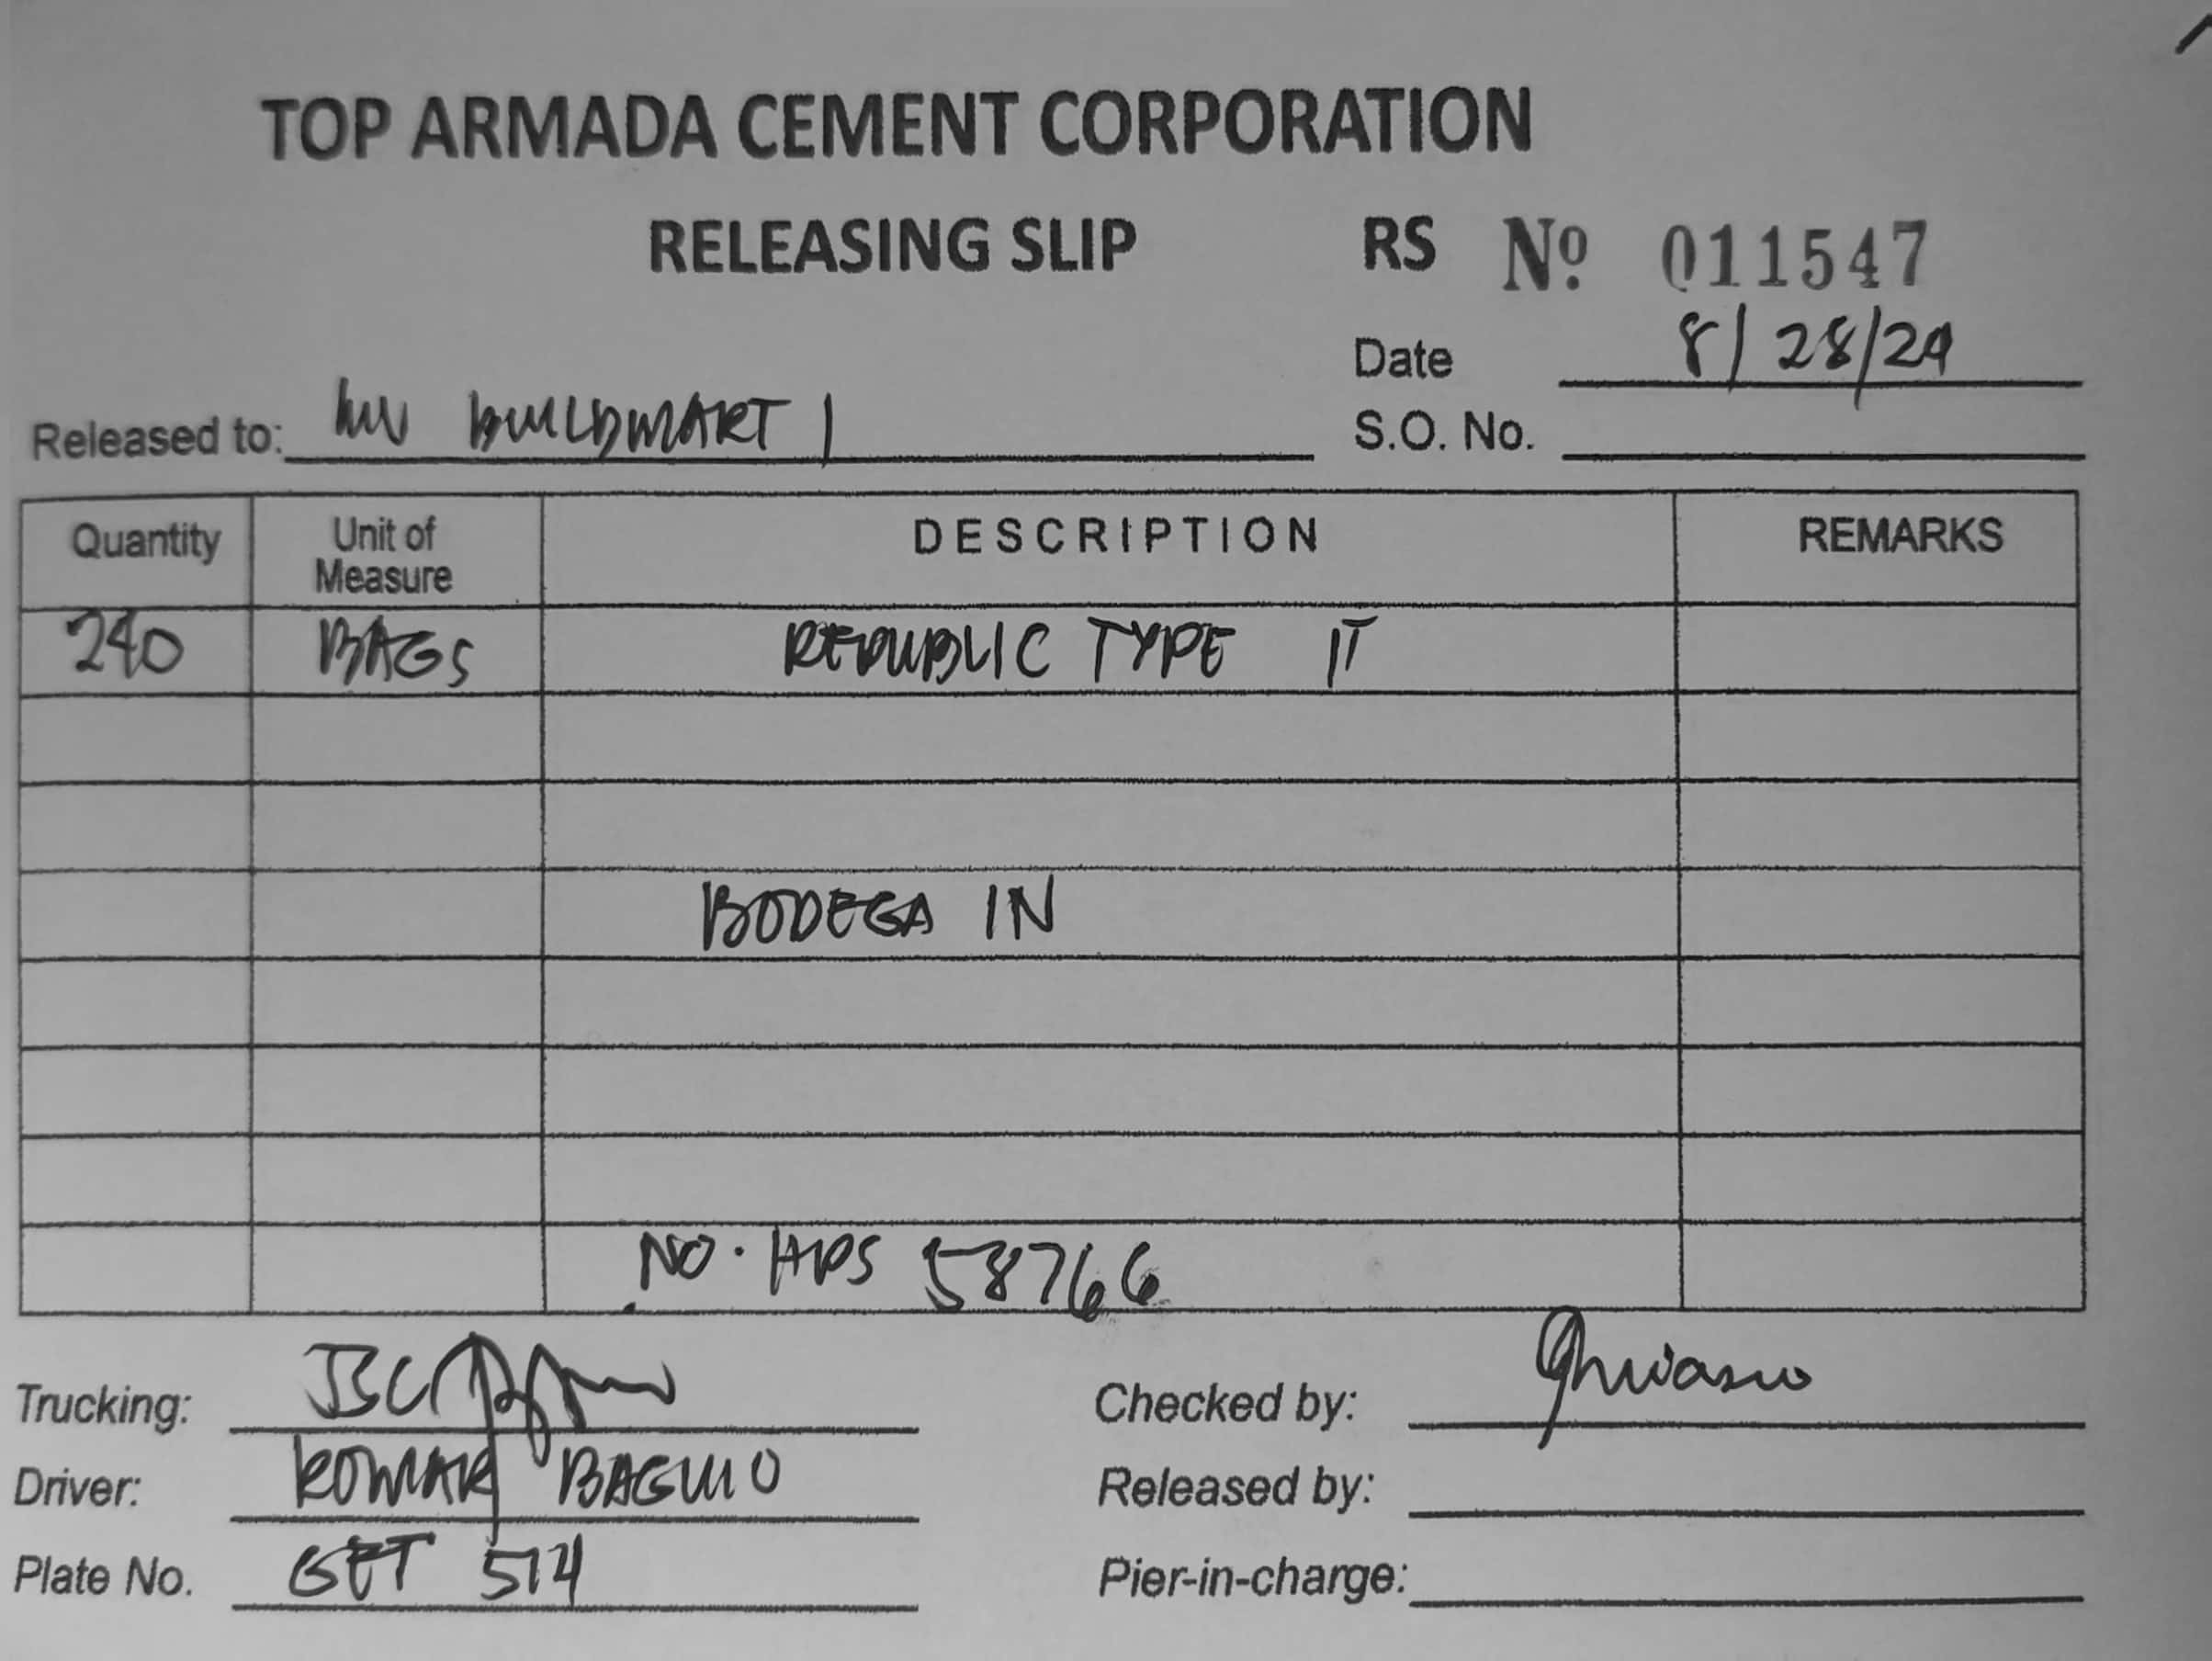 TOP ARMADA CEMENT CORPORATION
RELEASING SLIP RS Nº 011547
Date 8/28/24
Released to: BUILDMART 1
S.O. No.
Quantity Unit of Measure DESCRIPTION REMARKS
240 BAGS REPUBLIC TYPE IT
BODEGA IN
NO. 58766
Trucking: Checked by:
Driver: ROMAR BAGUIO Released by:
Plate No. GET Pier-in-charge: